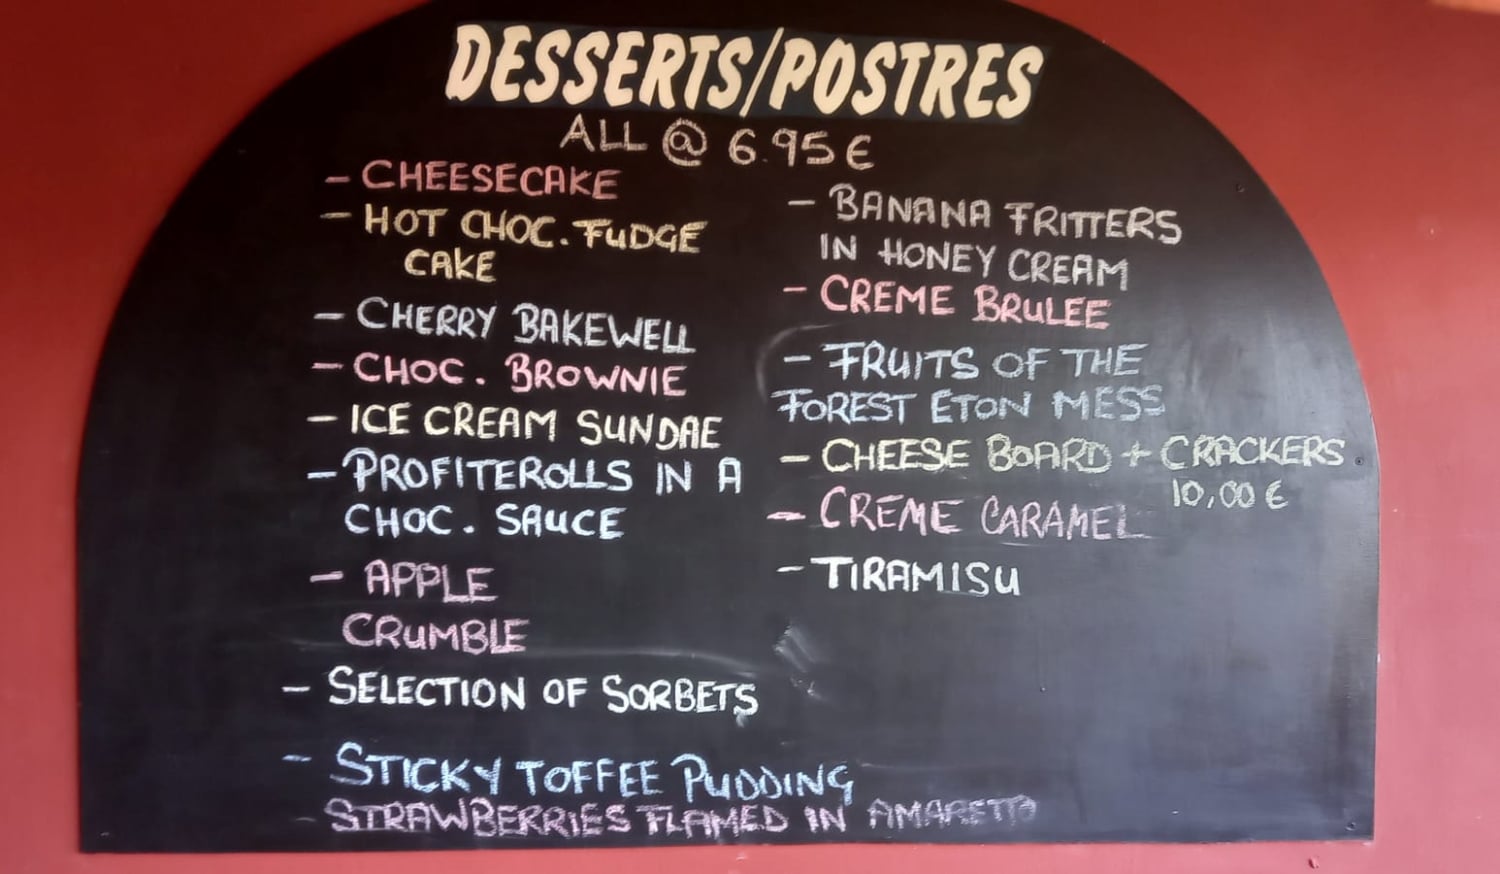 DESSERTS/POSTRES
ALL @ 6.95 €
- CHEESECAKE
- HOT CHOC. FUDGE
CAKE
- CHERRY BAKEWELL
- CHOC. BROWNIE
- ICE CREAM SUNDAE
- PROFITEROLLS IN A
CHOC. SAUCE
- APPLE
CRUMBLE
- SELECTION OF SORBETS
- STICKY TOFFEE PUDDING
- STRAWBERRIES FLAMED IN AMARETTO
- BANANA FRITTERS
IN HONEY CREAM
- CREME BRULEE
- FRUITS OF THE
FOREST ETON MESS
- CHEESE BOARD + CRACKERS
10,00 €
- CREME CARAMEL
- TIRAMISU